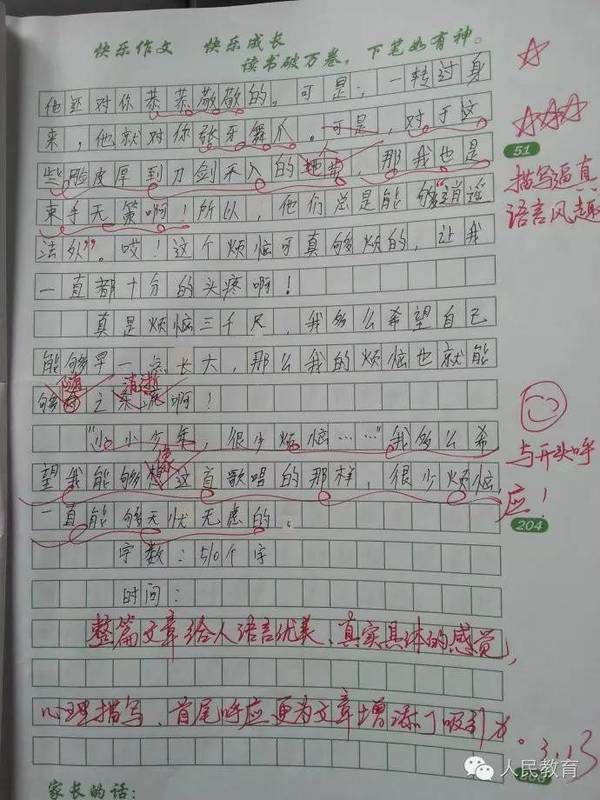 快乐作文 快乐成长
读书破万卷,下笔如有神。
他还对你恭恭敬敬的。可是,一转过身
来,他就对你张牙舞爪。可是,对于这
些脸皮厚到刀剑不入的,那我也是
51
束手无策啊!所以,他们总是能够“逍遥
法外”。哎!这个烦恼可真够烦的,让我
一直都十分的头疼啊!
描写逼真
语言风趣
真是烦恼三千尺,我多么希望自己
能够早一点长大,那么我的烦恼也就能
够随之消逝啊!
“小小少年,很少烦恼……”我多么希
望我能够像这首歌唱的那样,很少烦恼,
一直能够无忧无虑的。
与开头呼
应!
204
字数:510个字
时间:
整篇文章给人语言优美、真实具体的感觉,
心理描写、首尾呼应更为文章增添了吸引力。3.13
家长的话:
人民教育